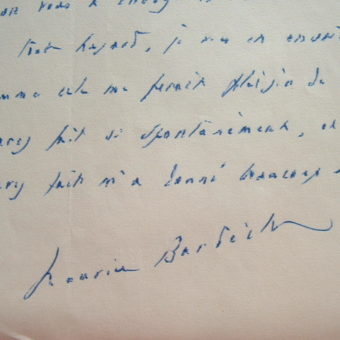 vous a
tout hasard, je vous en
comme cela me ferait plaisir de
avez fait si spontanément, et
avez fait m'a donné beaucoup
Maurice Bardèche